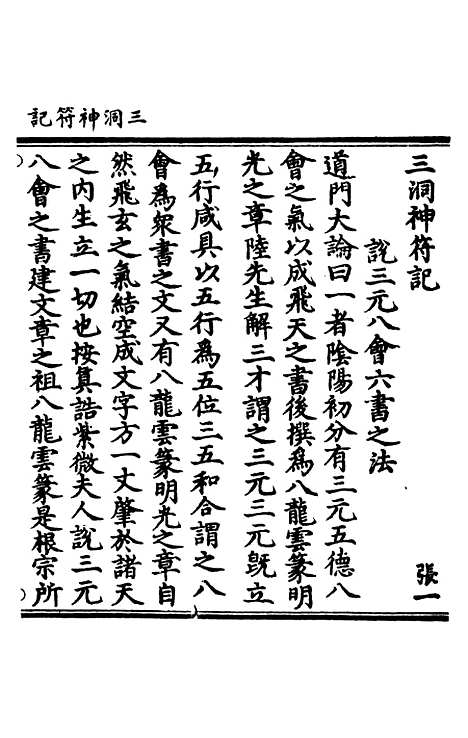 三洞神符記
三洞神符記
張一
說三元八會六書之法
道門大論曰一者陰陽初分有三元五德八
會之氣以成飛天之書後撰為八龍雲篆明
光之章陸先生解三才謂之三元三元旣立
五行咸具以五行為五位三五和合謂之八
會為衆書之文又有八龍雲篆明光之章自
然飛玄之氣結空成文字方一丈肇於諸天
之内生立一切也按真誥紫微夫人說三元
八會之書建文章之祖八龍雲篆是根宗所